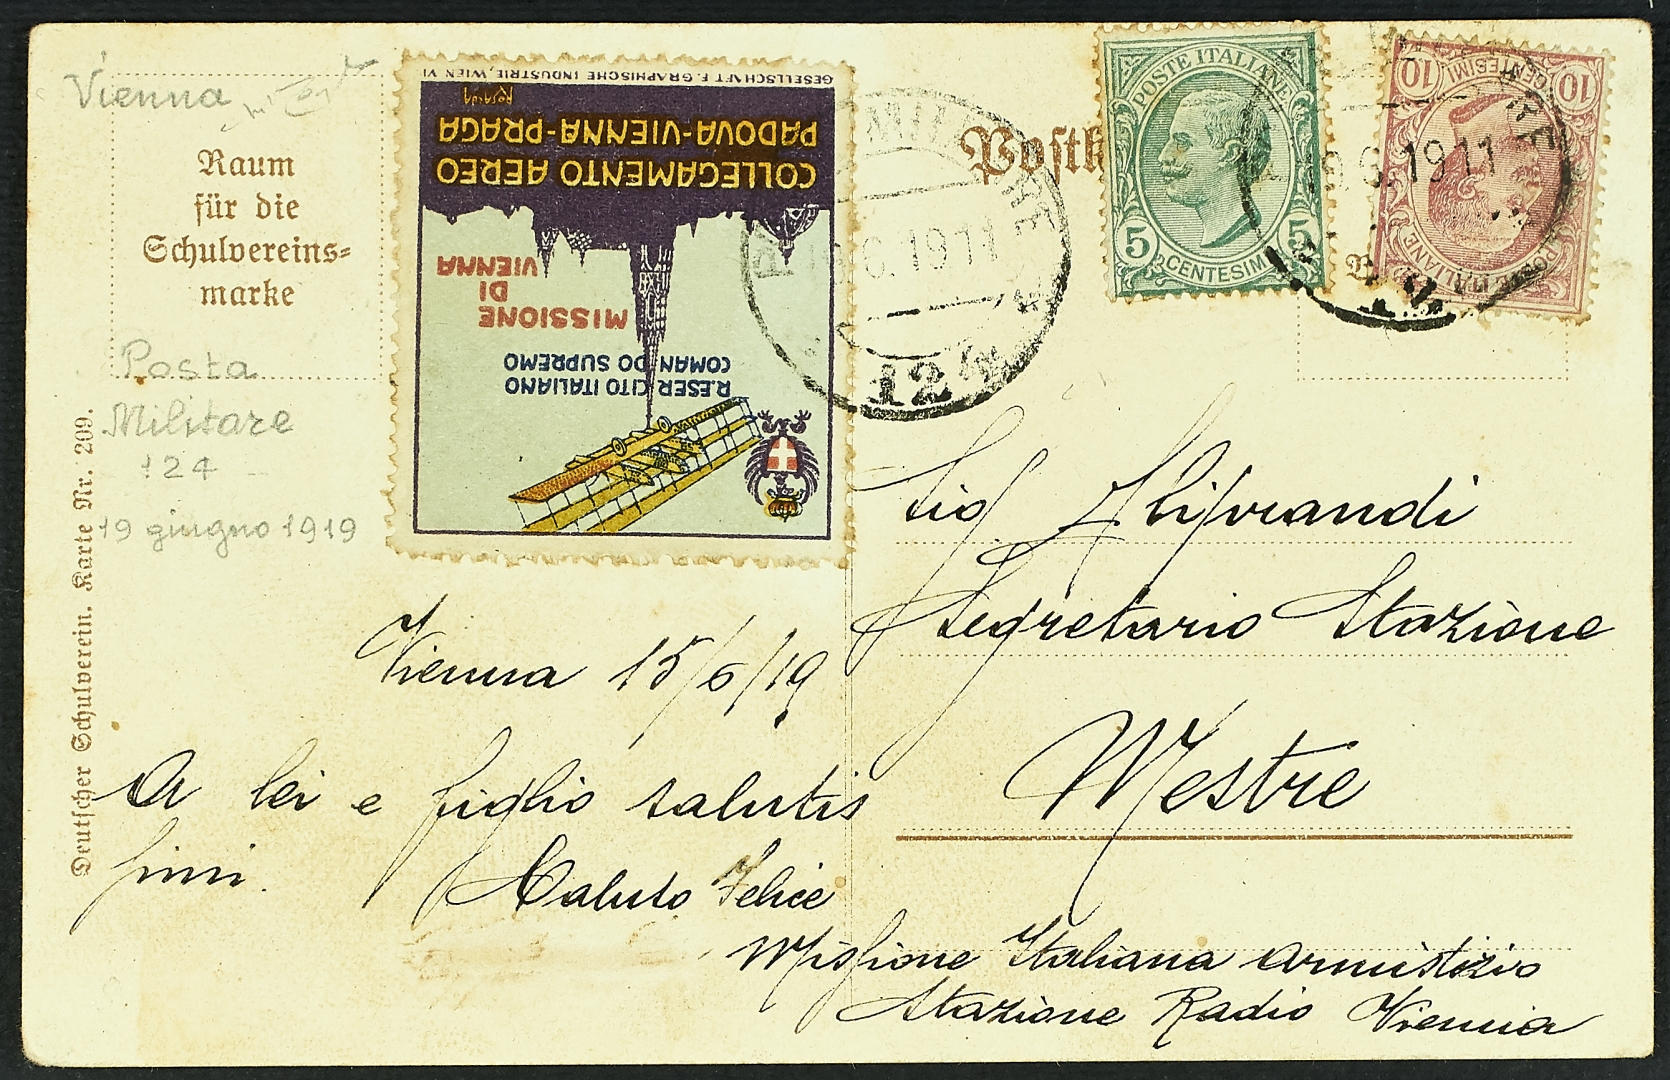 Vienna
Raum
für die
Schulvereins=
marke
Posta
Militare
124
19 giugno 1919
Deutscher Schulverein. Karte Nr. 209.
GESELLSCHAFT F. GRAPHISCHE INDUSTRIE, WIEN VI
COLLEGAMENTO AEREO
PADOVA-VIENNA-PRAGA
MISSIONE
DI
VIENNA
R.ESERCITO ITALIANO
COMANDO SUPREMO
6.19 11
124
Postk
POSTE ITALIANE
5 5
CENTESIMI
6.19 11
10 10
CENTESIMI
POSTE ITALIANE
Sig.
Segretario Stazione
Mestre
Vienna 15/6/19
A lei e figlio salutis
simi.
Caluso Felice
Missione Italiana Armistizio
Stazione Radio Vienna